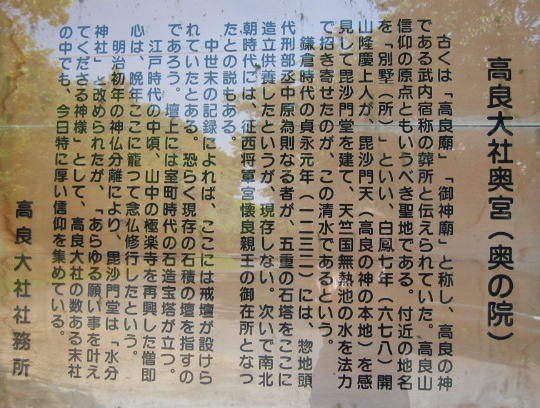 高良大社奥宮(奥の院)
古くは「高良廟」「御神廟」と称し、高良の神
である武内宿称の葬所と伝えられていた。高良山
信仰の原点ともいうべき聖地である。付近の地名
を「別墅(所)」といい、白鳳七年(六七八)開
山隆慶上人が、毘沙門天(高良の神の本地)を感
見して毘沙門堂を建て、天竺国無熱池の水を法力
で招き寄せたのが、この清水であるという。
鎌倉時代の貞永元年(一二三二)には、惣地頭
代刑部丞中原為則なる者が、五重の石塔をここに
造立供養したというが、現存しない。次いで南北
朝時代には、征西将軍宮懐良親王の御在所となっ
たとの説もある。
中世末の記録によれば、ここには戒壇が設けら
れていたとある。恐らく現存の石積の壇を指すの
であろう。壇上には室町時代の石造宝塔が立つ。
江戸時代の中頃、山中の極楽寺を再興した僧即
心は、晩年ここに籠って念仏修行したという。
明治初年の神仏分離により、毘沙門堂は「水分
神社」と改められたが、「あらゆる願い事を叶え
てくださる神様」として、高良大社の数ある末社
の中でも、今日特に厚い信仰を集めている。
高良大社社務所